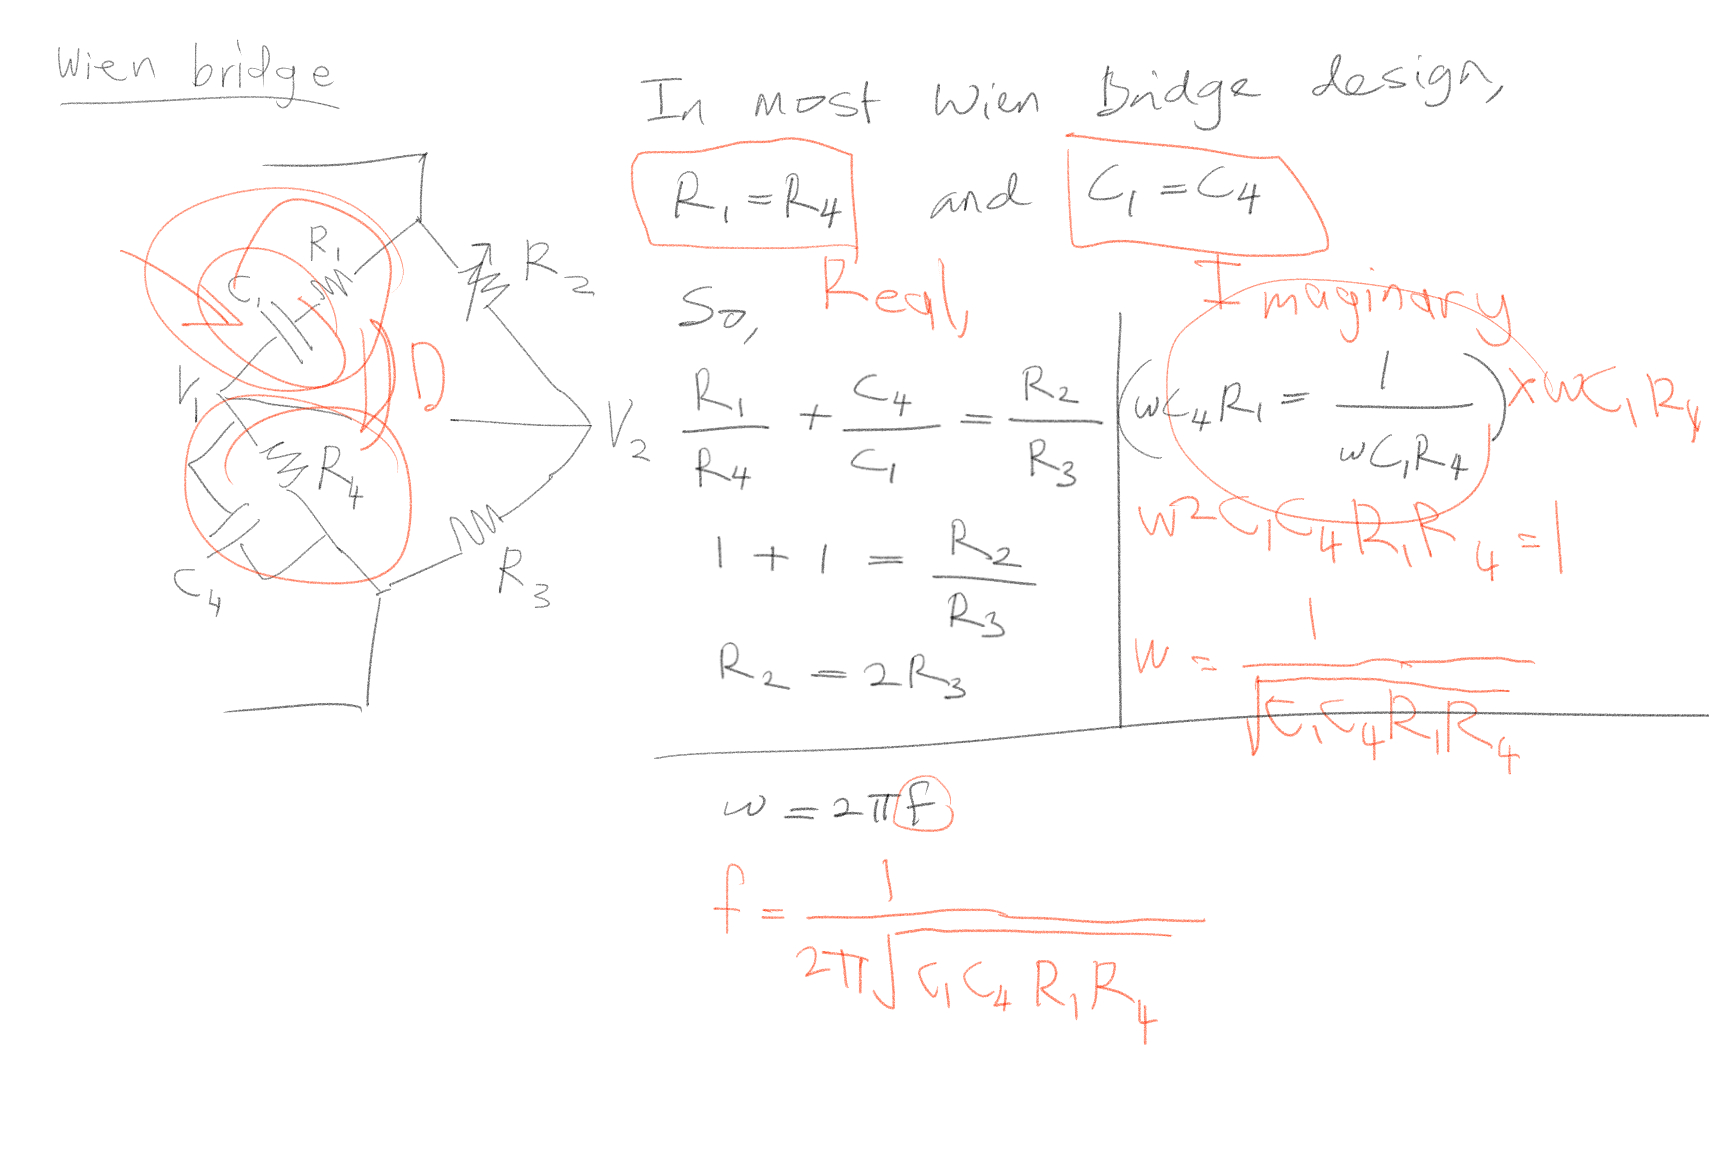 Wien bridge
R1
C1
R2
V1
D
V2
R4
C4
R3
In most Wien Bridge design,
R1 = R4 and C1 = C4
So, Real, Imaginary
R1/R4 + C4/C1 = R2/R3
1 + 1 = R2/R3
R2 = 2R3
(wC4R1 = 1/wC1R4) × wC1R4
w²C1C4R1R4 = 1
w = 1/√C1C4R1R4
w = 2πf
f = 1/2π√C1C4R1R4